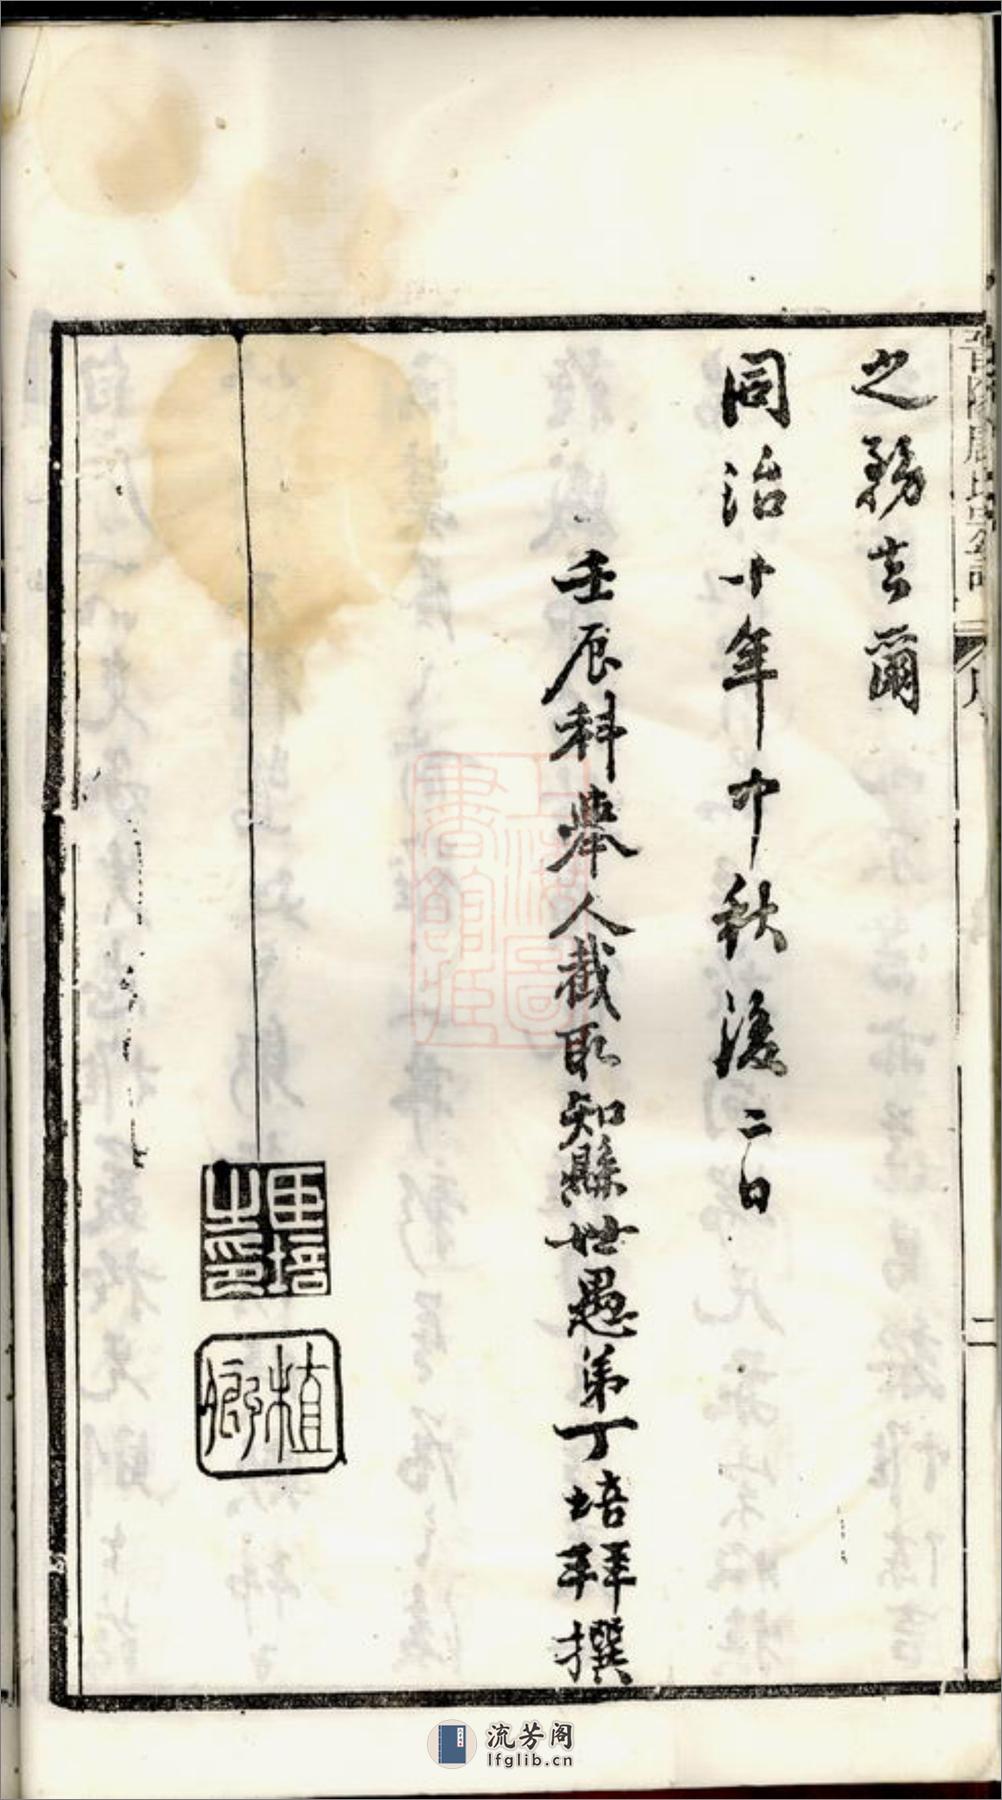 之務云爾
同治十年中秋後二日
壬辰科舉人截取知縣世愚弟丁培拜撰
臣培之印
植卿
上海圖書館藏
二
流芳阁
lfglib.cn